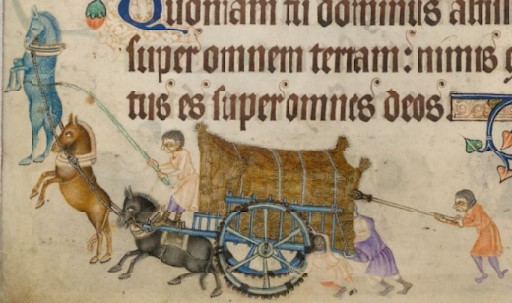 Quoniam tu dominus
super omnem terram : nimis
tus es super omnes deos.